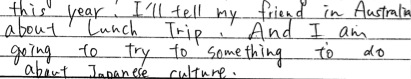 this year. I'll tell my friend in Australia
about Lunch Trip. And I am
going to try to something to do
about Japanese culture.